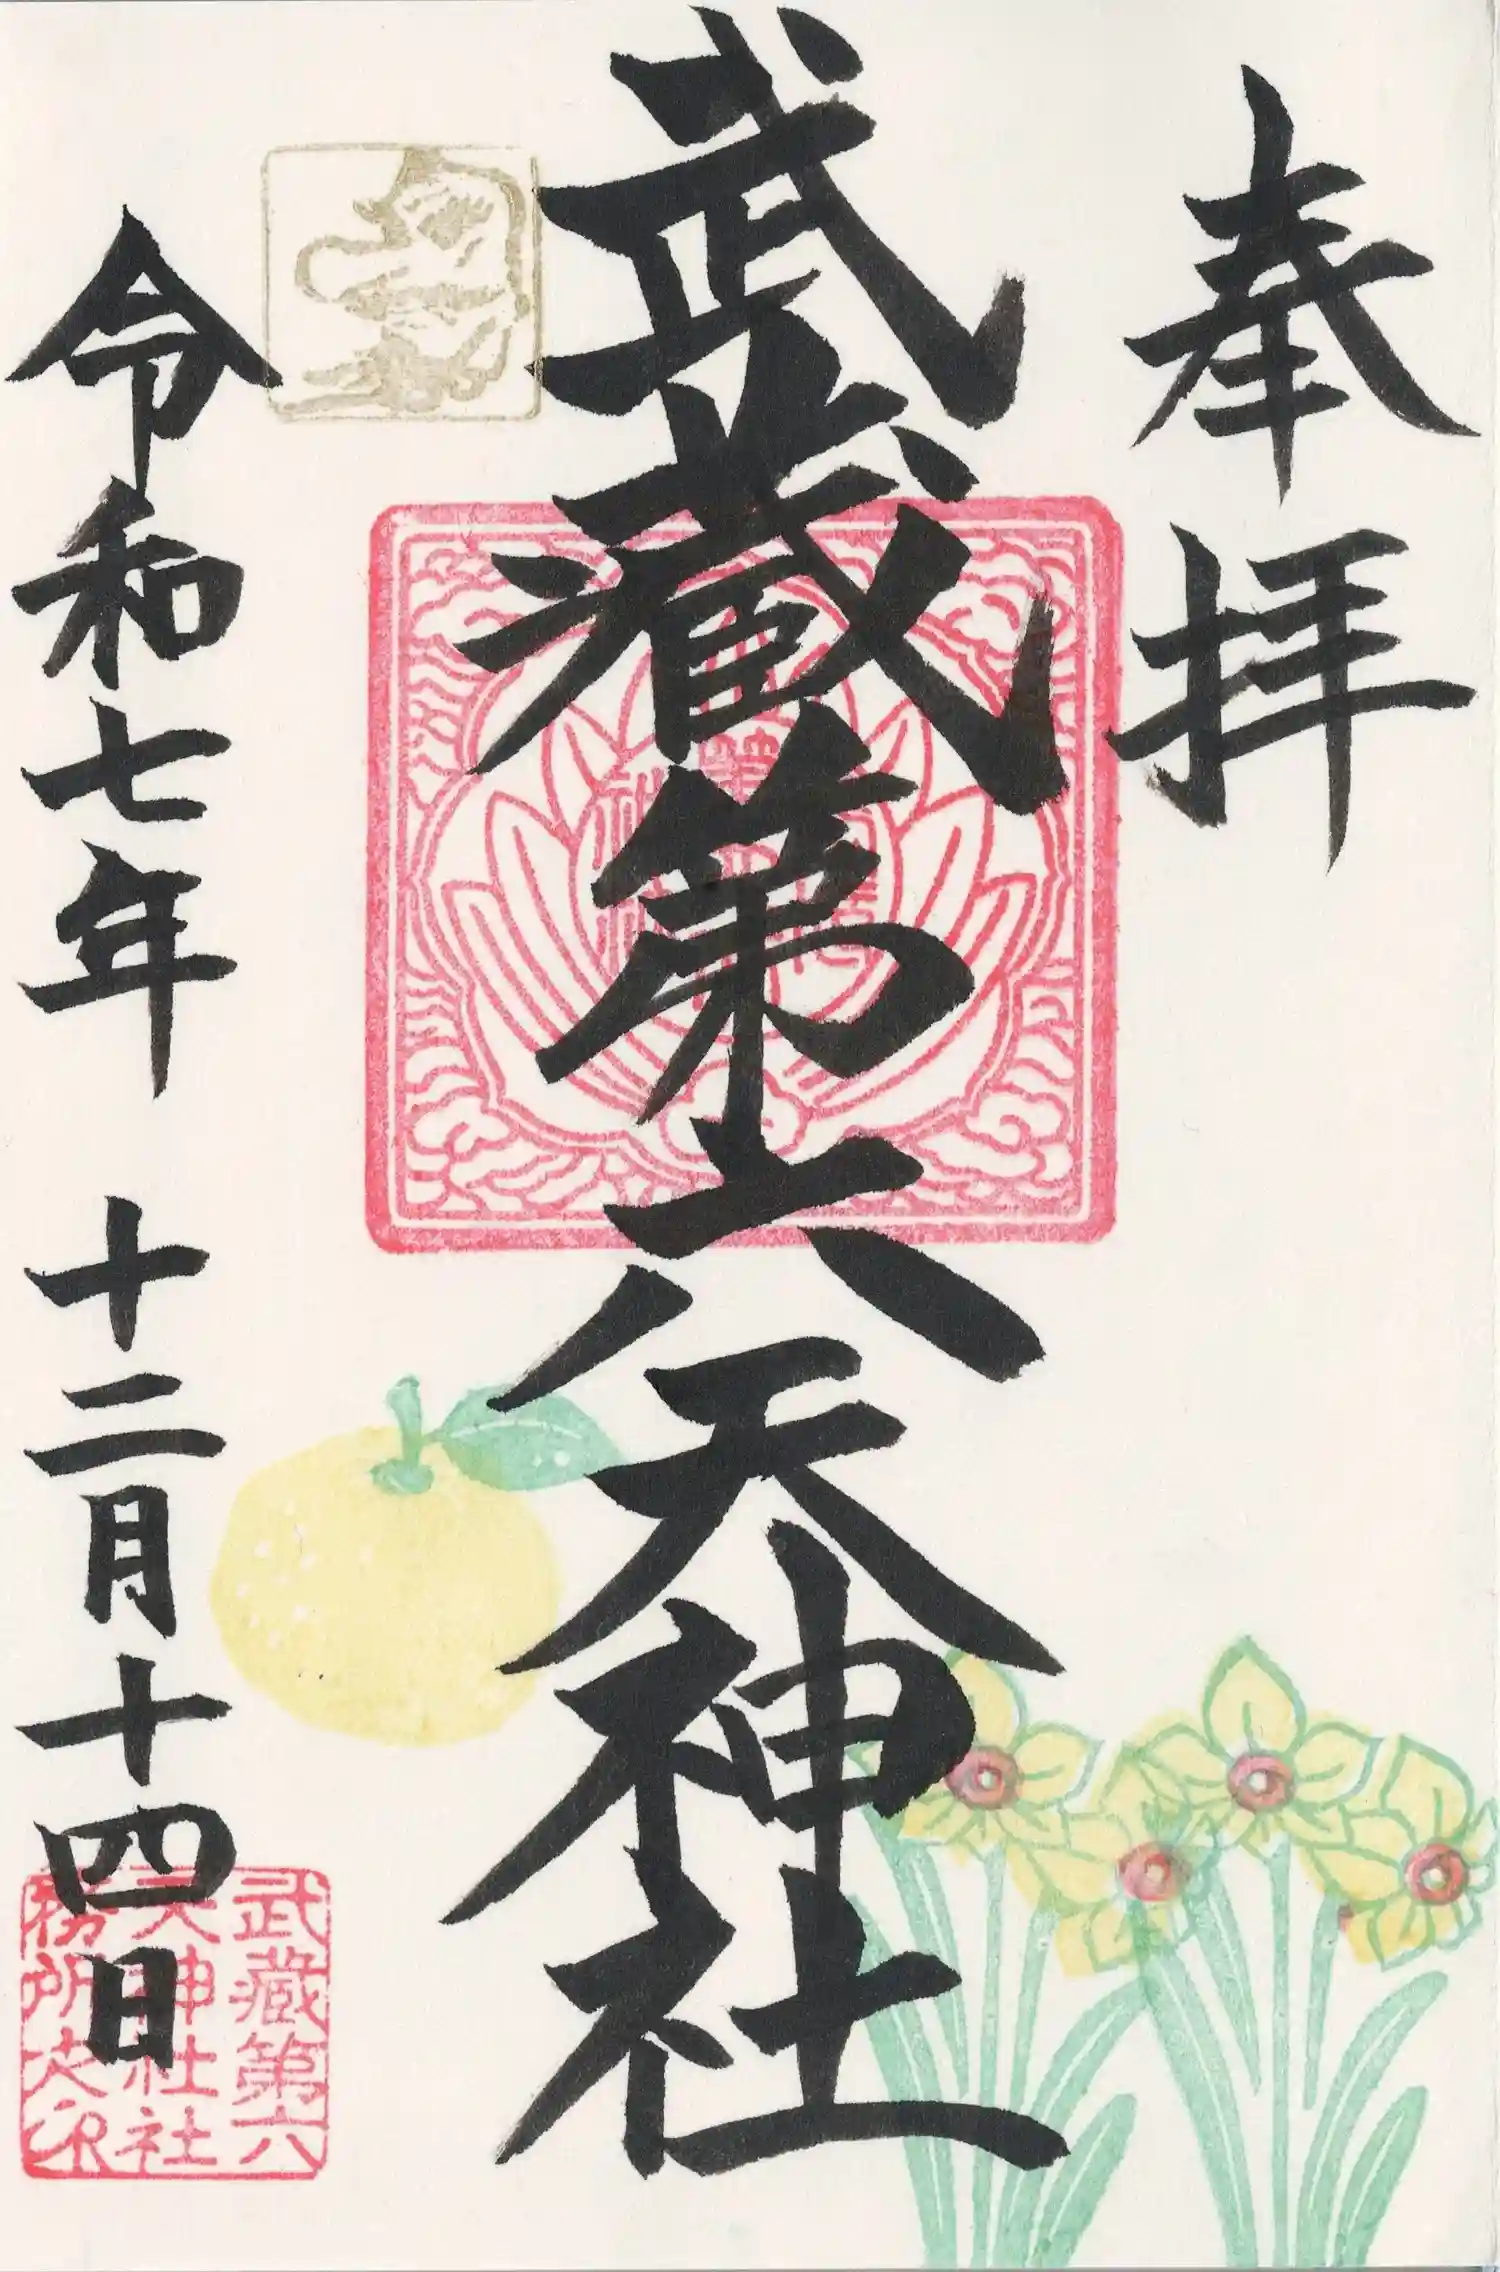 奉拝
武蔵第六天神社
令和七年 十二月十四日
武藏第六
天神社社
務所之印